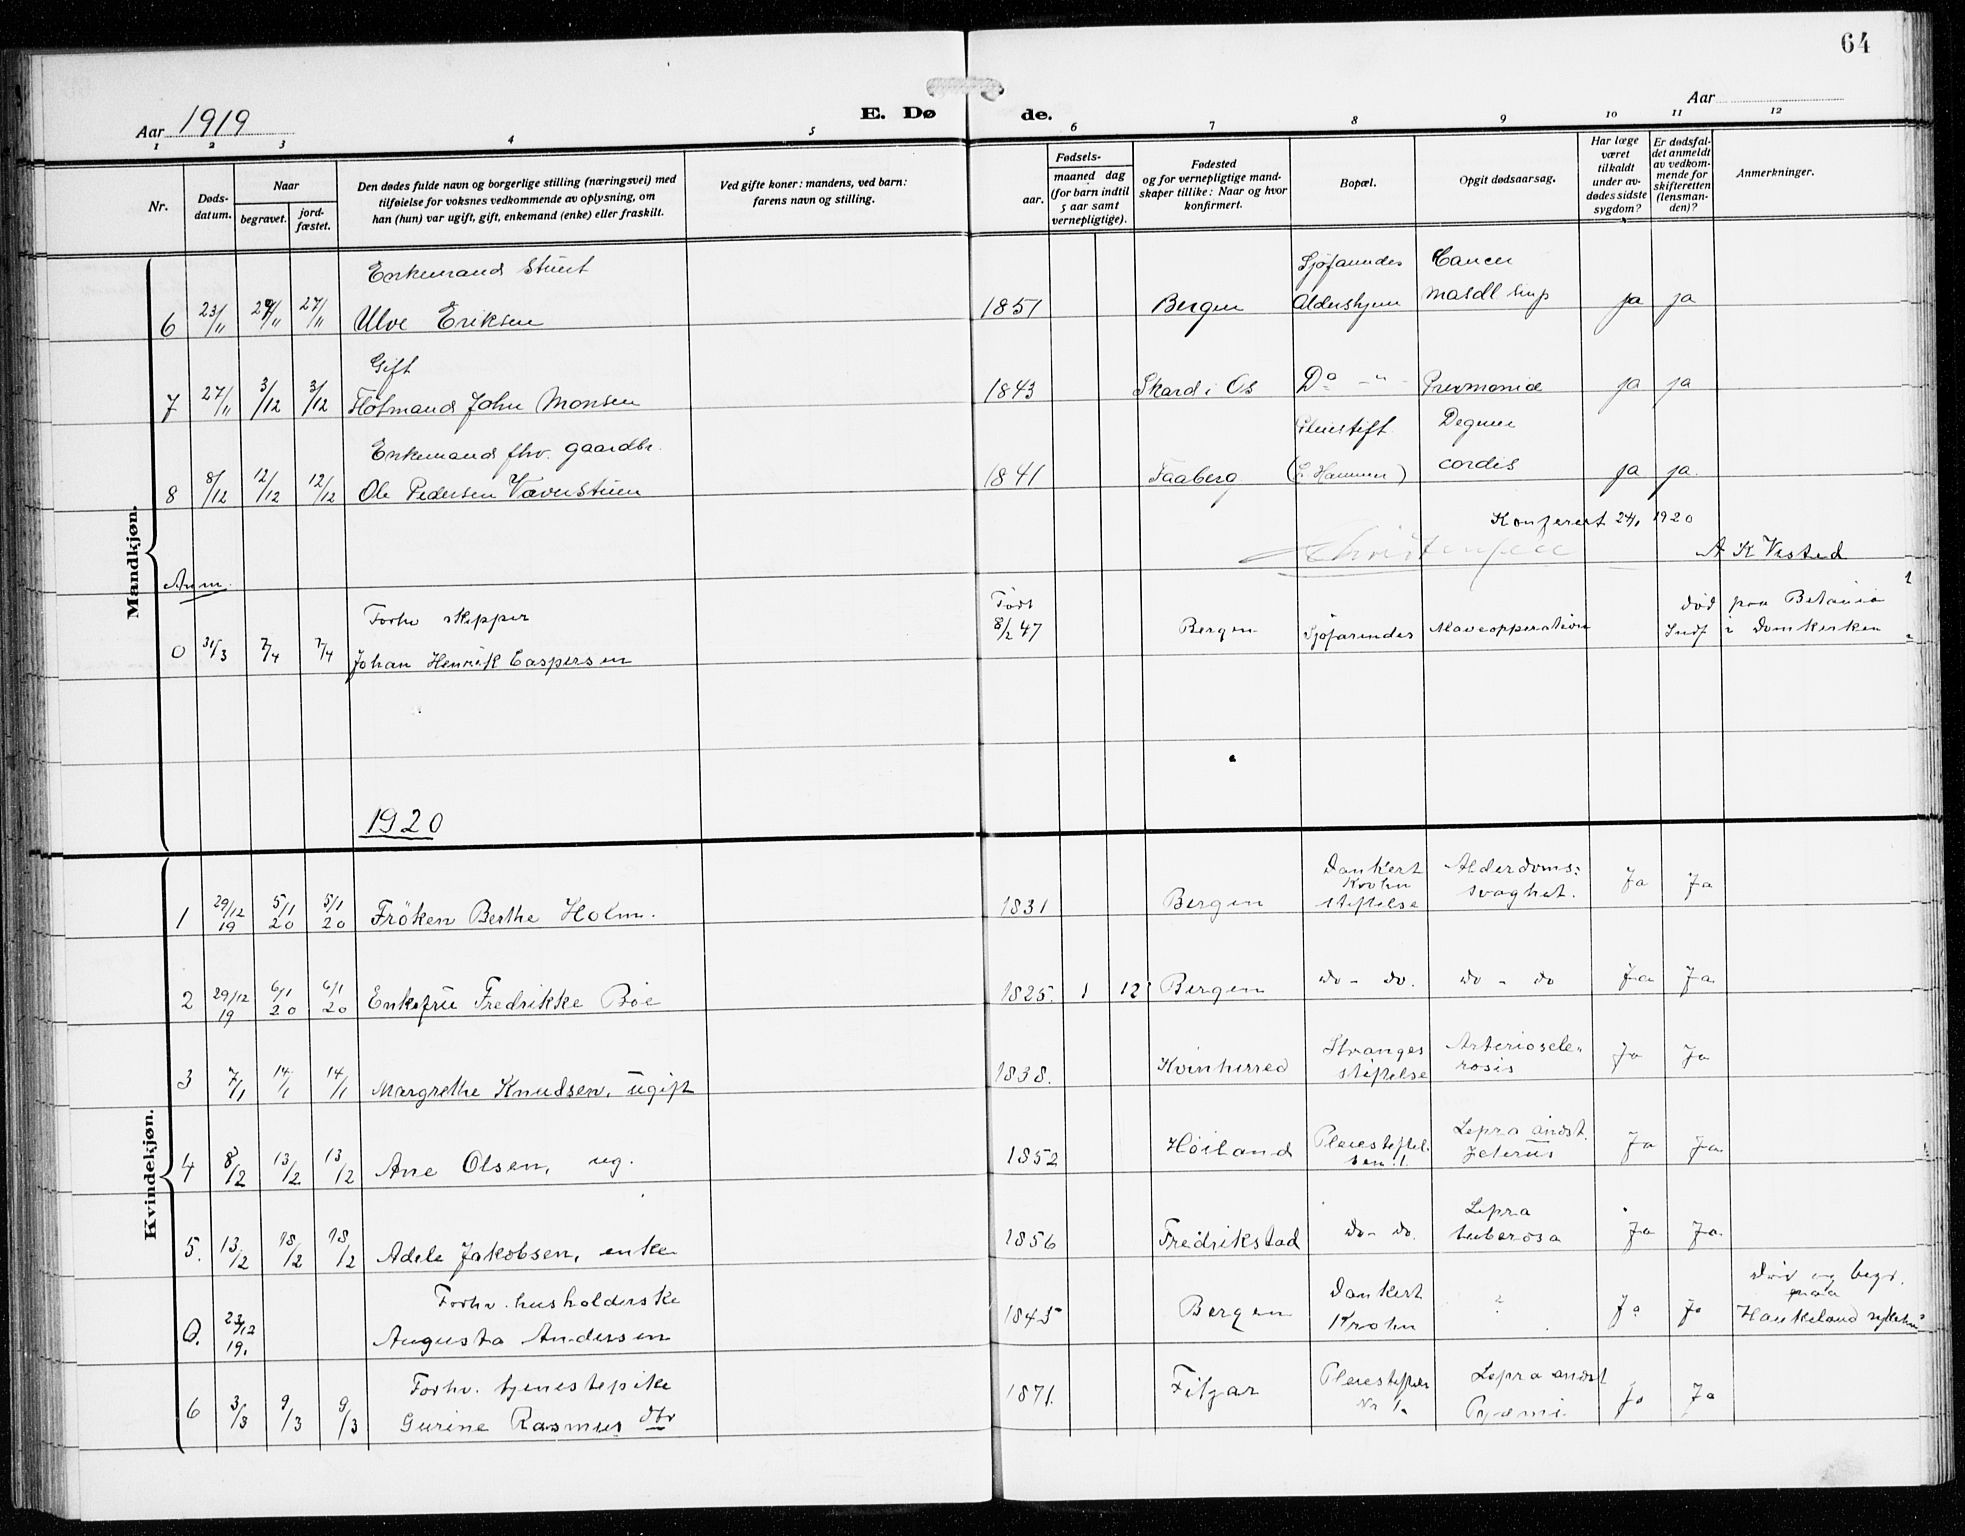 64
Aar 1919
E. Dø
de.
Aar
1 2 3 4 5 6 7 8 9 10 11 12
Nr.
Døds-
datum.
Naar
begravet.
jord-
fæstet.
Den dødes fulde navn og borgerlige stilling (næringsvei) med
tilføielse for voksnes vedkommende av oplysning, om
han (hun) var ugift, gift, enkemand (enke) eller fraskilt.
Ved gifte koner: mandens, ved barn:
farens navn og stilling.
Fødsels-
aar.
maaned dag
(for barn indtil
5 aar samt
vernepligtige).
Fødested
og for vernepligtige mand-
skaper tillike: Naar og hvor
konfirmert.
Bopæl.
Opgit dødsaarsag.
Har læge
været
tilkaldt
under av-
dødes sidste
sygdom?
Er dødsfal-
det anmeldt
av vedkom-
mende for
skifteretten
(lensman-
den)?
Anmerkninger.
Mandkjøn.
Enkemand Stuert Sjøfarendes Cancer
6 23/11 27/11 Ulve Eriksen 1851 Bergen Aldershjem ja ja
Gift
7 27/11 3/12 3/12 Flotmand John Monsen 1843 Skard i Os Do - " - Prevmonia ja ja
Enkemand fhv. gaardbr. Pleiestift.
8 8/12 12/12 12/12 Ole Pedersen Væverstuen 1841 Faaberg cordis ja ja.
Konferert 24/1 1920
Christensen
A K Visted
Anm.
Forhv skipper Født død paa Betania
0 31/3 7/4 7/4 Johan Henrik Caspersen 8/2 47 Bergen Sjøfarendes Maveopperation Indf i Domkirken
1920
Kvindekjøn.
Dankert Alderdoms:
Krohn
1 29/12 19 5/1 20 5/1 20 Frøken Berthe Holm. 1831 Bergen stiftelse svaghet. Ja Ja
2 29/12 19 6/1 20 6/1 20 Enkefru Fredrikke Bøe 1825. 1 12 Bergen do - do. do - do Ja Ja
Stranges Arteriosele-
3 7/1 14/1 14/1 Margrethe Knudsen, ugift 1838. Kvinherred stiftelse rosis Ja Ja
Pleiestiftel- Lepra anæst.
4 8/12 13/2 13/2 Ane Olsen, ug. 1852 Høiland sen 1 Icterus Ja Ja
Lepra
5. 13/2 18/2 18/2 Adele Jakobsen, enke 1856 Fredrikstad do - do. tuberosa Ja Ja
Forhv. husholderske Dankert død og begr.
paa
0. 23/12 19. Augusta Andersen 1845 Bergen Krohn ? Ja Ja Haukeland
Forhv. tjenestepike Lepra anæst
6 3/3 9/3 9/3 Gurine Rasmus dtr 1871. Fitjar Nr 1 Ja Ja